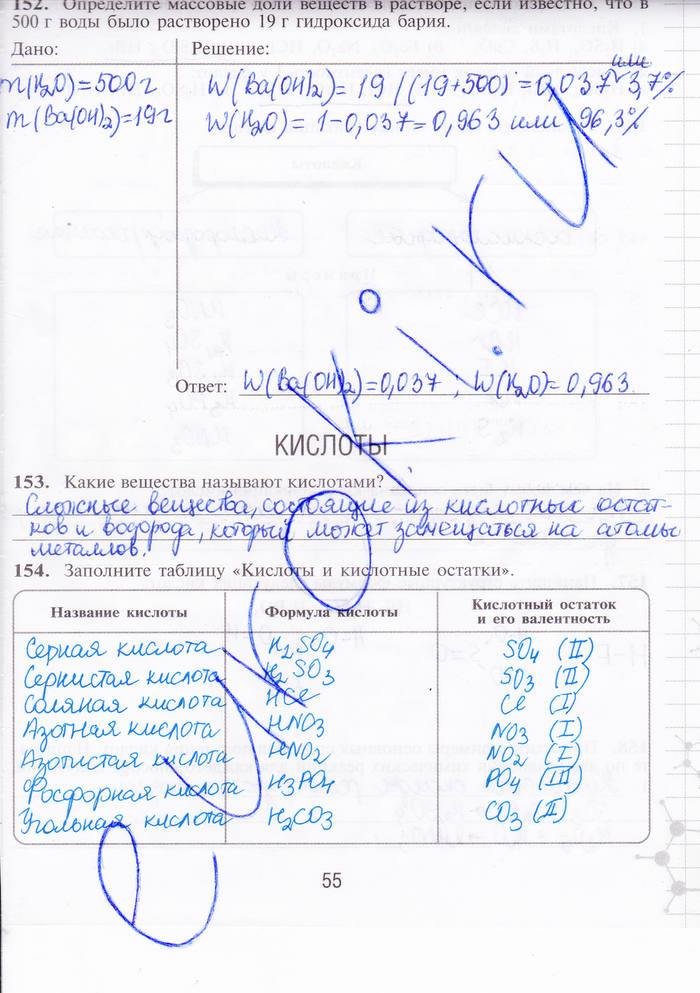 152. Определите массовые доли веществ в растворе, если известно, что в
500 г воды было растворено 19 г гидроксида бария.
Дано: Решение:
m(H₂O)=500г W(Ba(OH)₂)=19/(19+500)=0,037 или 3,7%
m(Ba(OH)₂)=19г W(H₂O)=1-0,037=0,963 или 96,3%
Ответ: W(Ba(OH)₂)=0,037; W(H₂O)=0,963.
КИСЛОТЫ
153. Какие вещества называют кислотами?
Сложные вещества, состоящие из кислотных остат-
ков и водорода, который может замещаться на атомы
металлов.
154. Заполните таблицу «Кислоты и кислотные остатки».
Название кислоты Формула кислоты Кислотный остаток
и его валентность
Серная кислота H₂SO₄ SO₄ (II)
Сернистая кислота H₂SO₃ SO₃ (II)
Соляная кислота HCl Cl (I)
Азотная кислота HNO₃ NO₃ (I)
Азотистая кислота HNO₂ NO₂ (I)
Фосфорная кислота H₃PO₄ PO₄ (III)
Угольная кислота H₂CO₃ CO₃ (II)
55